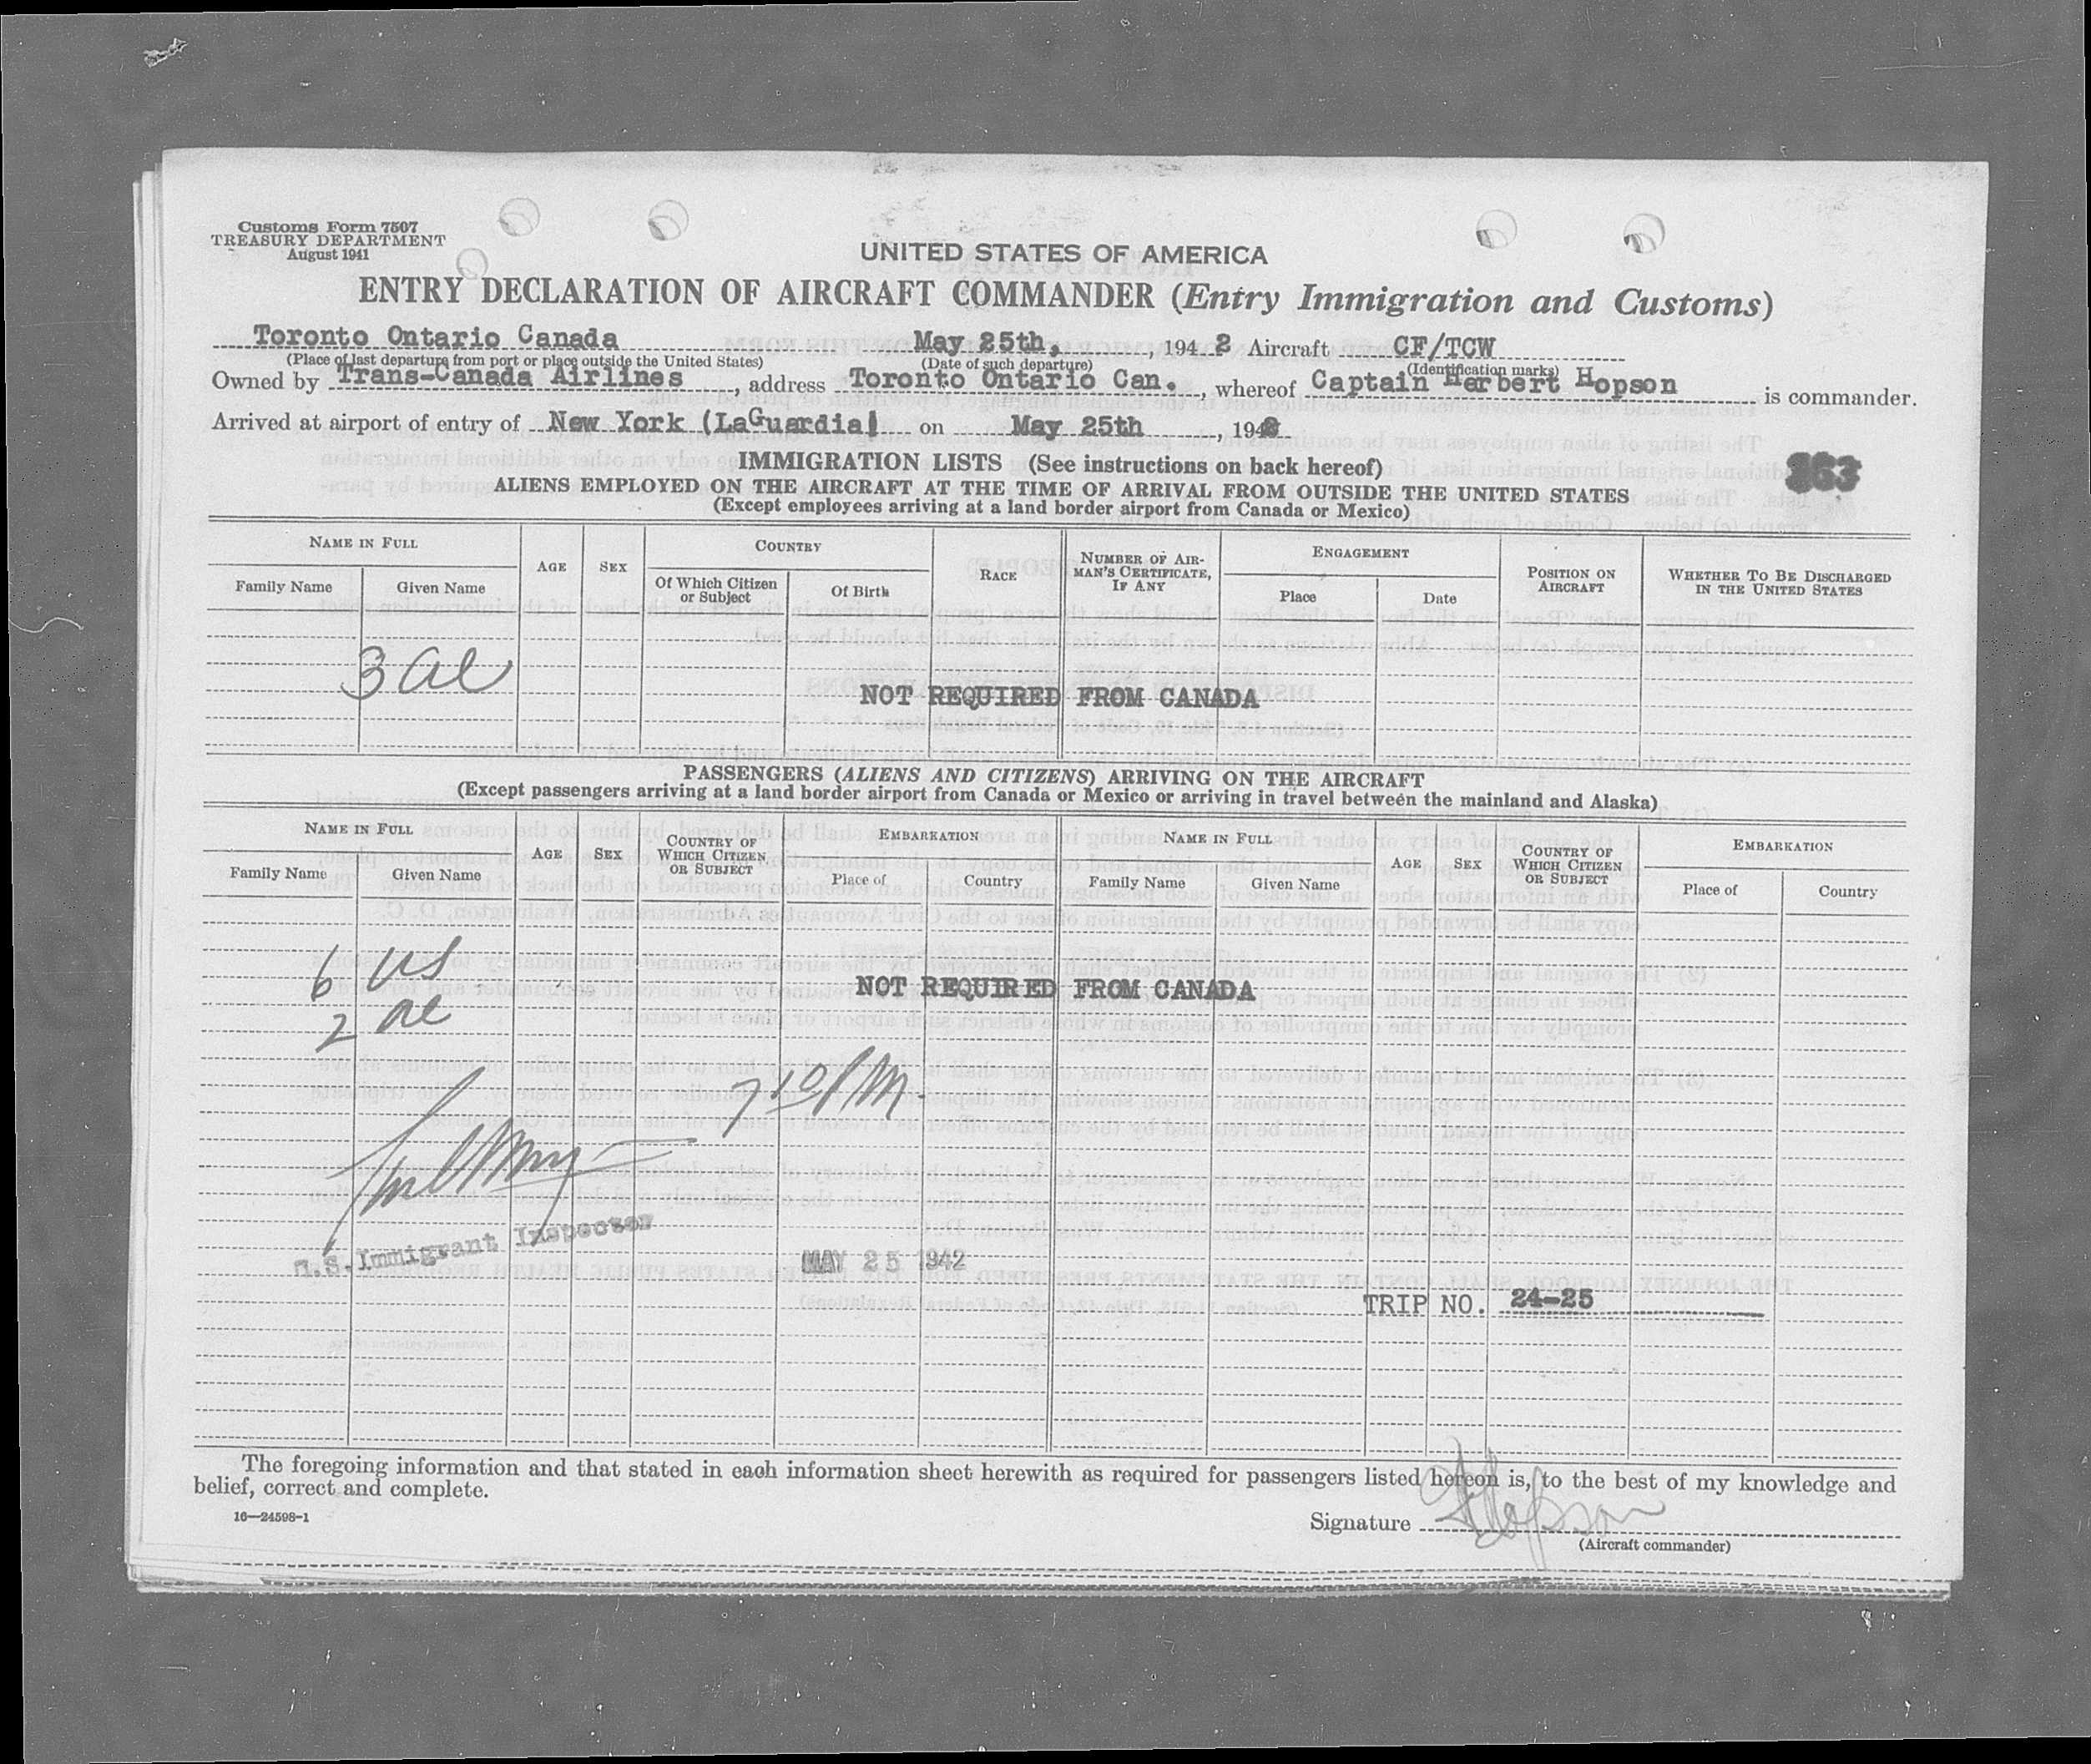 Customs Form 7507
TREASURY DEPARTMENT
August 1941
UNITED STATES OF AMERICA
ENTRY DECLARATION OF AIRCRAFT COMMANDER (Entry Immigration and Customs)
Toronto Ontario Canada May 25th, , 194 2 Aircraft CF/TCW
(Place of last departure from port or place outside the United States) (Date of such departure) (Identification marks)
Owned by Trans-Canada Airlines , address Toronto Ontario Can. , whereof Captain Herbert Hopson is commander.
Arrived at airport of entry of New York (LaGuardia) on May 25th , 1942
IMMIGRATION LISTS (See instructions on back hereof)
253
ALIENS EMPLOYED ON THE AIRCRAFT AT THE TIME OF ARRIVAL FROM OUTSIDE THE UNITED STATES
(Except employees arriving at a land border airport from Canada or Mexico)
NAME IN FULL AGE SEX COUNTRY RACE NUMBER OF AIRMAN'S CERTIFICATE, IF ANY ENGAGEMENT POSITION ON AIRCRAFT WHETHER TO BE DISCHARGED IN THE UNITED STATES
Family Name Given Name Of Which Citizen or Subject Of Birth Place Date
3 al
NOT REQUIRED FROM CANADA
PASSENGERS (ALIENS AND CITIZENS) ARRIVING ON THE AIRCRAFT
(Except passengers arriving at a land border airport from Canada or Mexico or arriving in travel between the mainland and Alaska)
NAME IN FULL AGE SEX COUNTRY OF WHICH CITIZEN OR SUBJECT EMBARKATION NAME IN FULL AGE SEX COUNTRY OF WHICH CITIZEN OR SUBJECT EMBARKATION
Family Name Given Name Place of Country Family Name Given Name Place of Country
6 US
NOT REQUIRED FROM CANADA
2 al
7 10 PM.
U.S. Immigrant Inspector
MAY 25 1942
TRIP NO. 24-25
The foregoing information and that stated in each information sheet herewith as required for passengers listed hereon is, to the best of my knowledge and
belief, correct and complete.
16—24598-1
Signature H Hopson
(Aircraft commander)